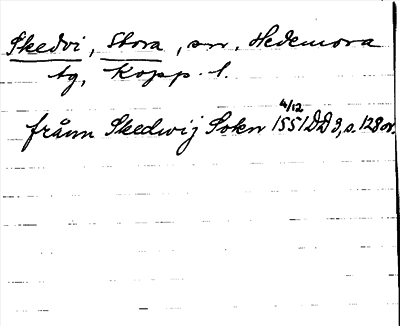 Skedvi, Stora, sn. Hedemora
tg, Kopp. l.
frånn Skedwij Sokn 4/12 1551 DD 3, s. 128 ov.